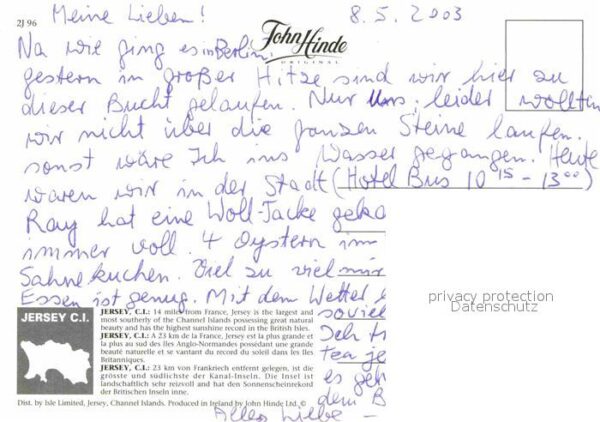 2J 96
Meine Lieben! 8.5.2003
John Hinde
ORIGINAL
Na wie ging es in Berlin,
gestern in großer Hitze sind wir hier zu
dieser Bucht gelaufen. Nur uns; leider wollten
wir nicht über die ganzen Steine laufen.
sonst wäre Ich ins Wasser gegangen. Heute
waren wir in der Stadt (Hotel Bus 10 15 - 13 00)
Ray hat eine Woll-Jacke geka
immer voll. 4 Oystern im
Sahnekuchen. Viel zu viel mir
Essen ist genug. Mit dem Wetter
soviel
Ich
Tea je
es geh
dem B
Alles Liebe -
privacy protection
Datenschutz
JERSEY C.I.
JERSEY, C.I.: 14 miles from France, Jersey is the largest and
most southerly of the Channel Islands possessing great natural
beauty and has the highest sunshine record in the British Isles.
JERSEY, C.I.: A 23 km de la France, Jersey est la plus grande et
la plus au sud des Iles Anglo-Normandes possédant une grande
beauté naturelle et se vantant du record du soleil dans les Iles
Britanniques.
JERSEY, C.I.: 23 km von Frankriech entfernt gelegen, ist die
grösste und südlichste der Kanal-Inseln. Die Insel ist
landschaftlich sehr reizvoll and hat den Sonnenscheinrekord
der Britischen Inseln inne.
Dist. by Isle Limited, Jersey, Channel Islands. Produced in Ireland by John Hinde Ltd. ©